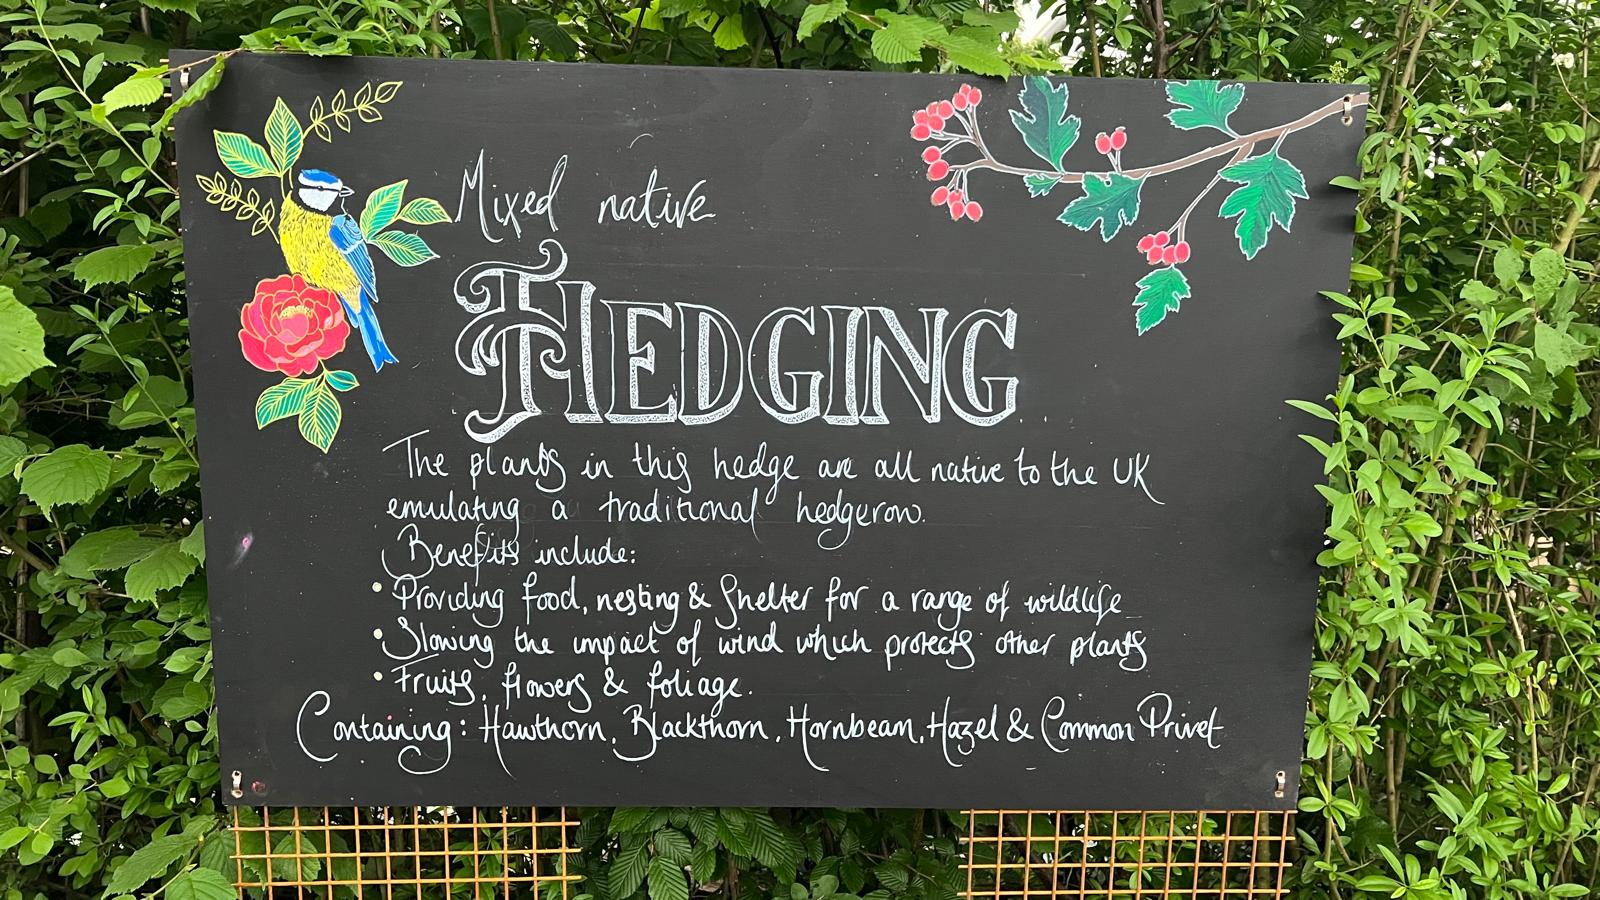 Mixed native
HEDGING
The plants in this hedge are all native to the UK
emulating a traditional hedgerow.
Benefits include:
• Providing food, nesting & Shelter for a range of wildlife
• Slowing the impact of wind which protects other plants
• Fruits, flowers & foliage.
Containing: Hawthorn, Blackthorn, Hornbeam, Hazel & Common Privet